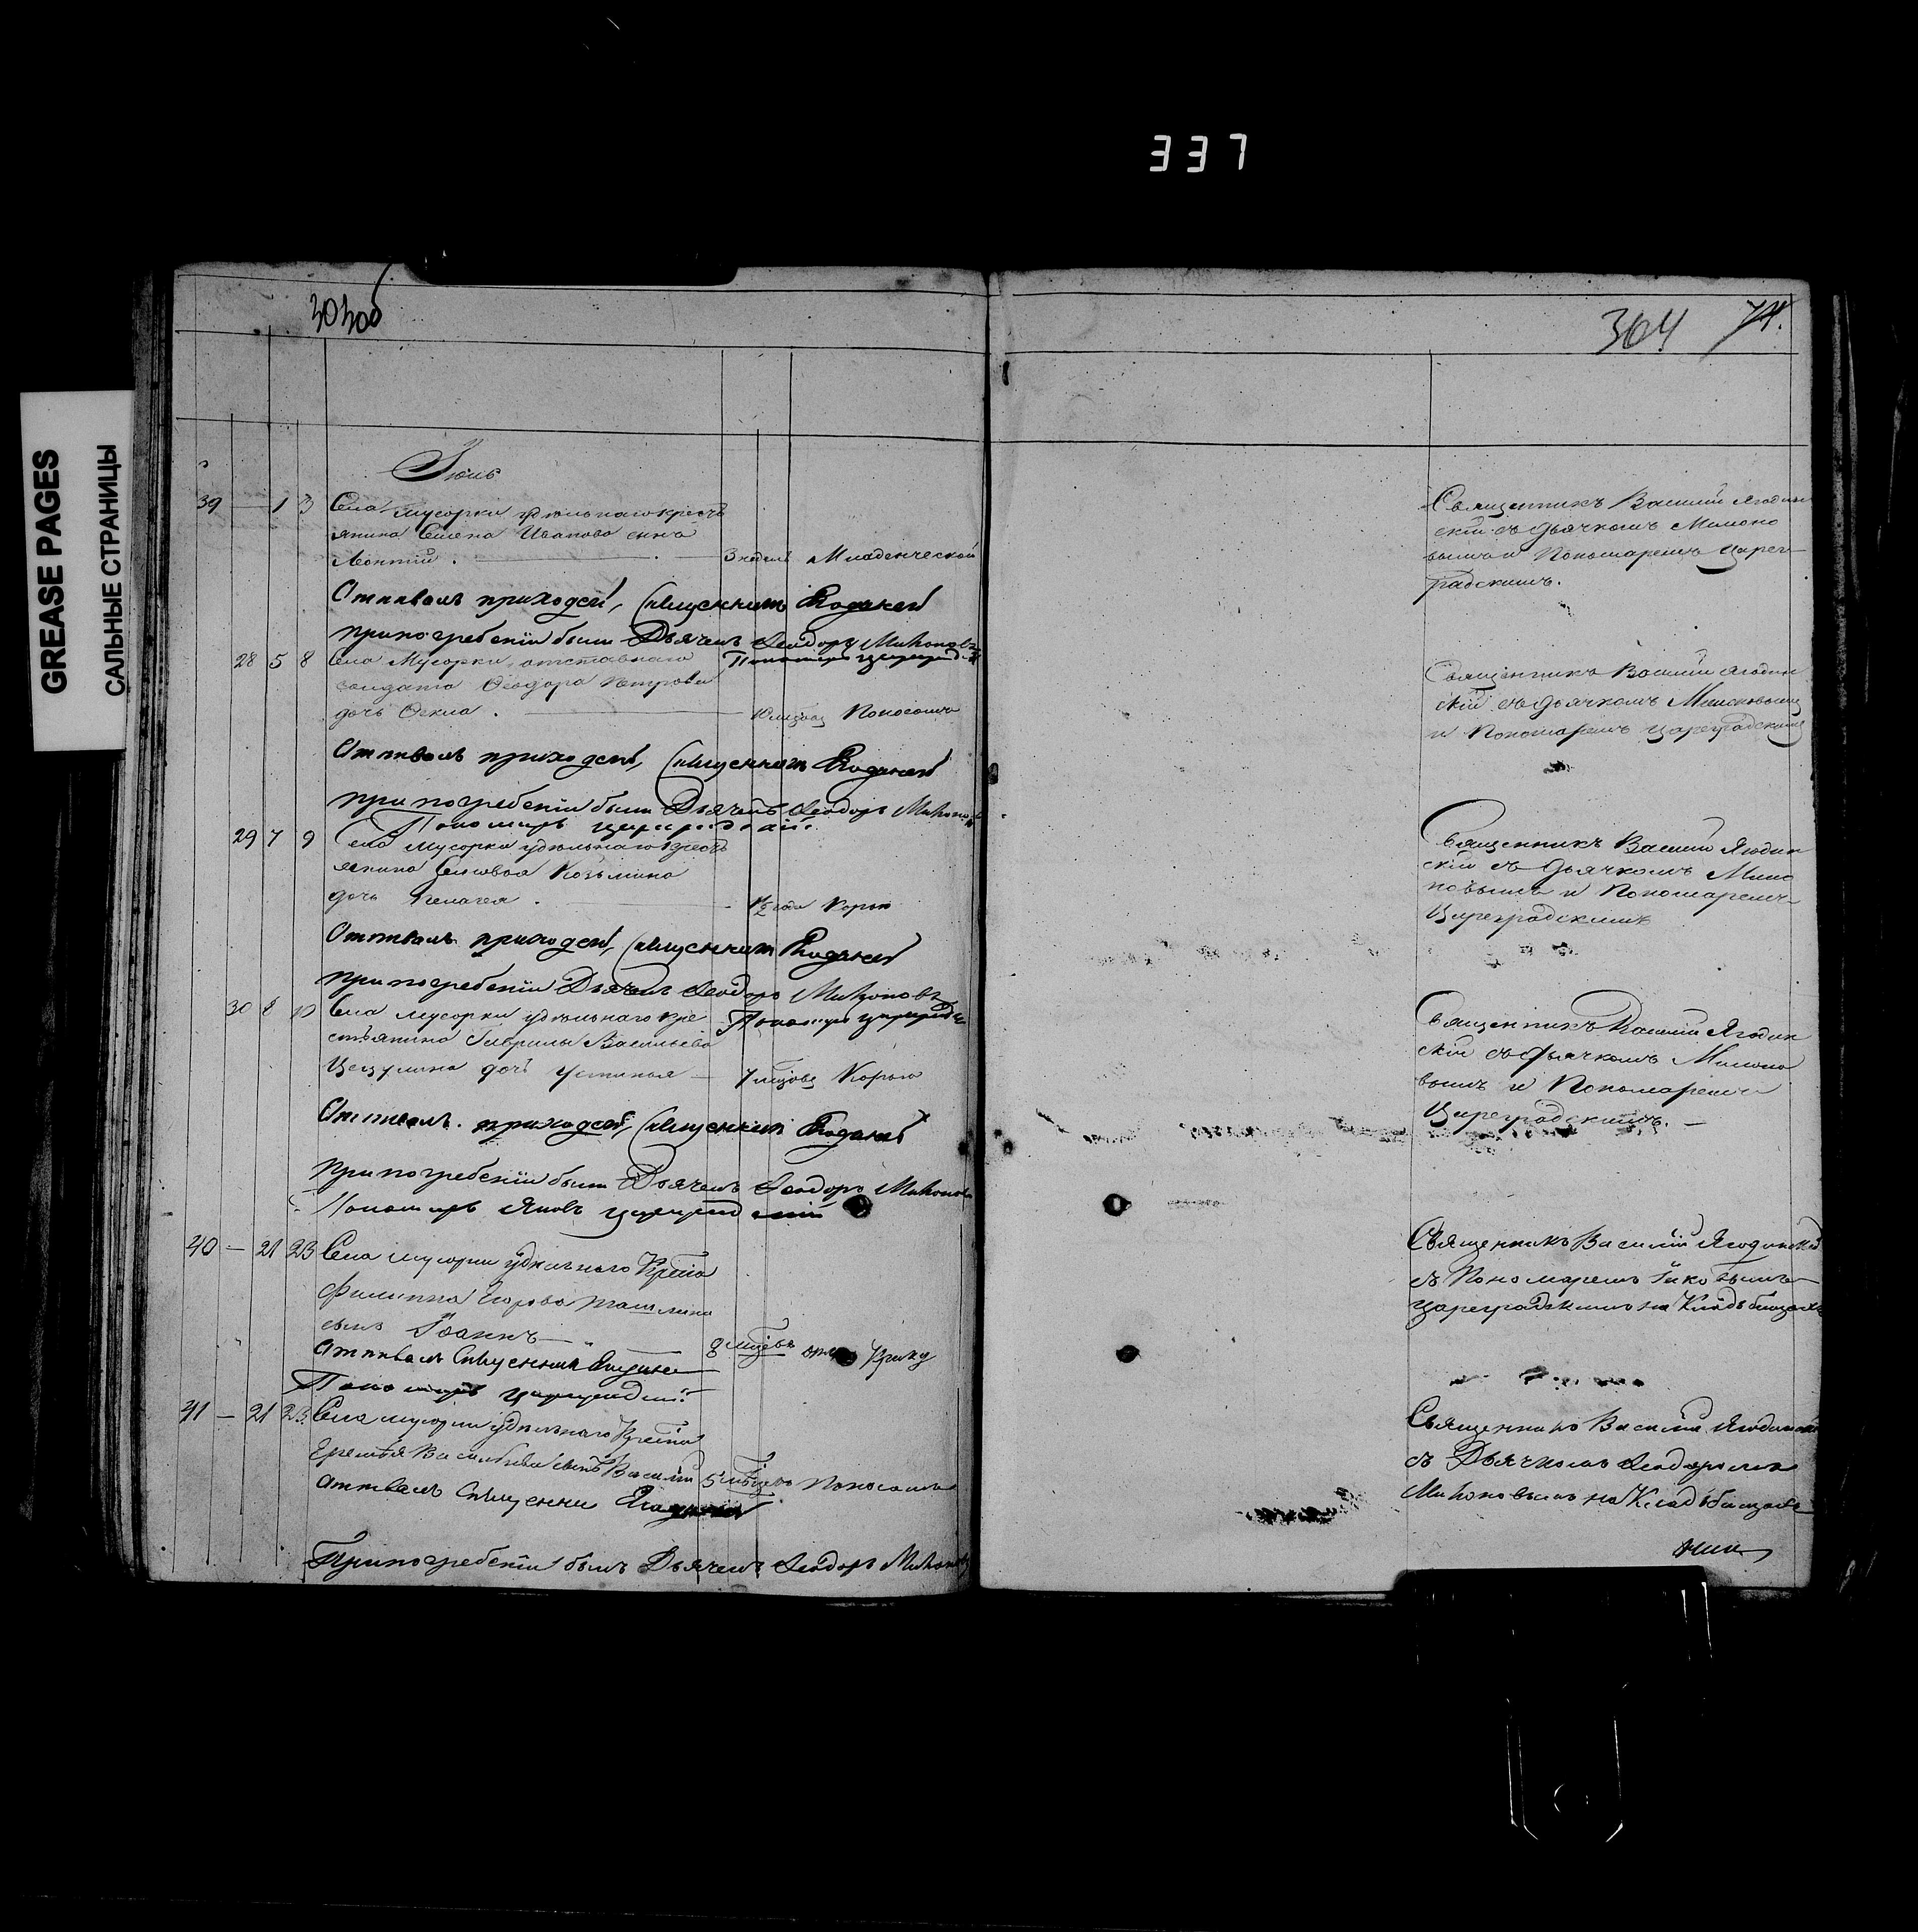 337
GREASE PAGES
САЛЬНЫЕ СТРАНИЦЫ
303об
304 74.
Июнь
39 — 1 3 Села Мусорки удѣльнаго кресть
янина Семена Иванова сынъ
Леонтій. 3 недѣль Младенческой
Отпѣвалъ приходской Священникъ Ягодинскій
при погребеніи были Дьячекъ Ѳеодоръ Милоновъ
Пономарь Цареградскій
28 5 8 Села Мусорки отставнаго
солдата Ѳеодора Петрова
дочь Ѳекла. 10 мѣсяц Поносомъ
Отпѣвалъ приходской Священникъ Ягодинскій
при погребеніи были Дьячекъ Ѳеодоръ Милоновъ
Пономарь Цареградскій
29 7 9 Села Мусорки удѣльнаго кресть
янина Козьмина
дочь Пелагея. 1/2 года Корью
Отпѣвалъ приходской Священникъ Ягодинскій
при погребеніи Дьячекъ Ѳеодоръ Милоновъ
Пономарь Цареградскій
30 8 10 Села Мусорки удѣльнаго кре
стьянина Гаврилы Васильева
дочь Устинья 7 мѣсяц Корью
Отпѣвалъ приходской Священникъ Ягодинскій
при погребеніи были Дьячекъ Ѳеодоръ Милоновъ
Пономарь Яковъ Цареградскій
40 — 21 23 Села Мусорки удѣльнаго Крестья
Филиппа Егорова
сынъ Іоаннъ 8 мѣсцевъ
Отпѣвалъ Священникъ Ягодинскій
Пономарь Цареградскій
41 — 21 23 Села Мусорки удѣльнаго Крестья
Васильева сынъ Василій 5 мѣсцевъ Поносомъ
Отпѣвалъ Священник Ягодинскій
При погребеніи былъ Дьячекъ Ѳеодоръ Милоновъ
Священникъ Василій Ягодин
скій съ дьячкомъ Милоно
вымъ и Пономаремъ Царег
радскимъ.
Священникъ Василій Ягодин
скій съ дьячкомъ Милоновымъ
и Пономаремъ Цареградскимъ
Священникъ Василій Ягодин
скій съ дьячкомъ Мило
новымъ и Пономаремъ
Цареградскимъ
Священникъ Василій Ягодин
скій съ дьячкомъ Милоно
вымъ и Пономаремъ
Цареградскимъ. —
Священникъ Василій Ягодинскій
съ Пономаремъ Яковымъ
Цареградскимъ на Кладбищѣ
Священникъ Василій Ягодинскій
съ Дьячкомъ Ѳеодоромъ
Милоновымъ на Кладбищѣ